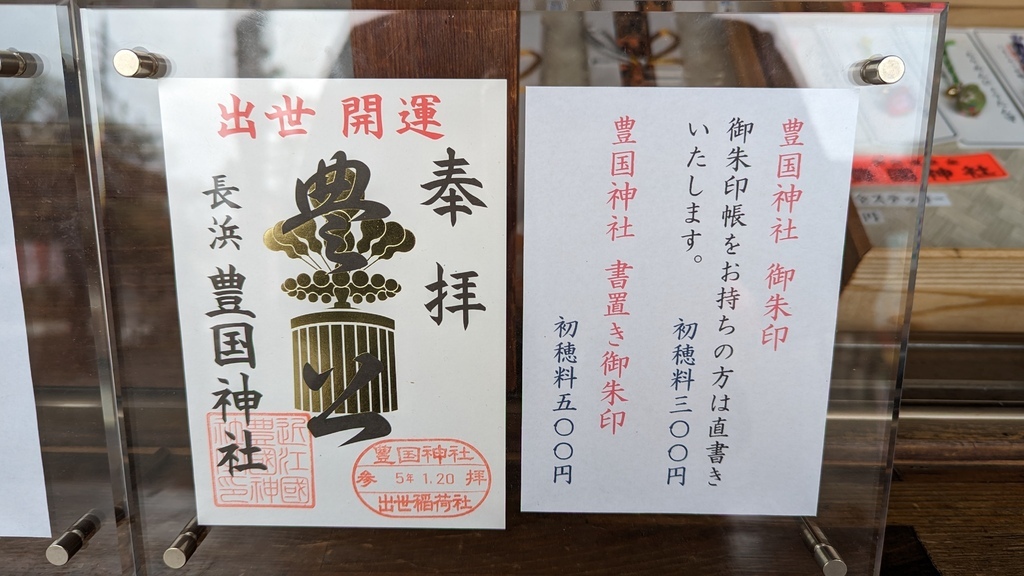 出世 開運
奉拝
豊公
長浜 豊国神社
豊国神社
参 5年 1.20 拝
出世稲荷社
豊国神社 御朱印
御朱印帳をお持ちの方は直書き
いたします。
初穂料三〇〇円
豊国神社 書置き御朱印
初穂料五〇〇円